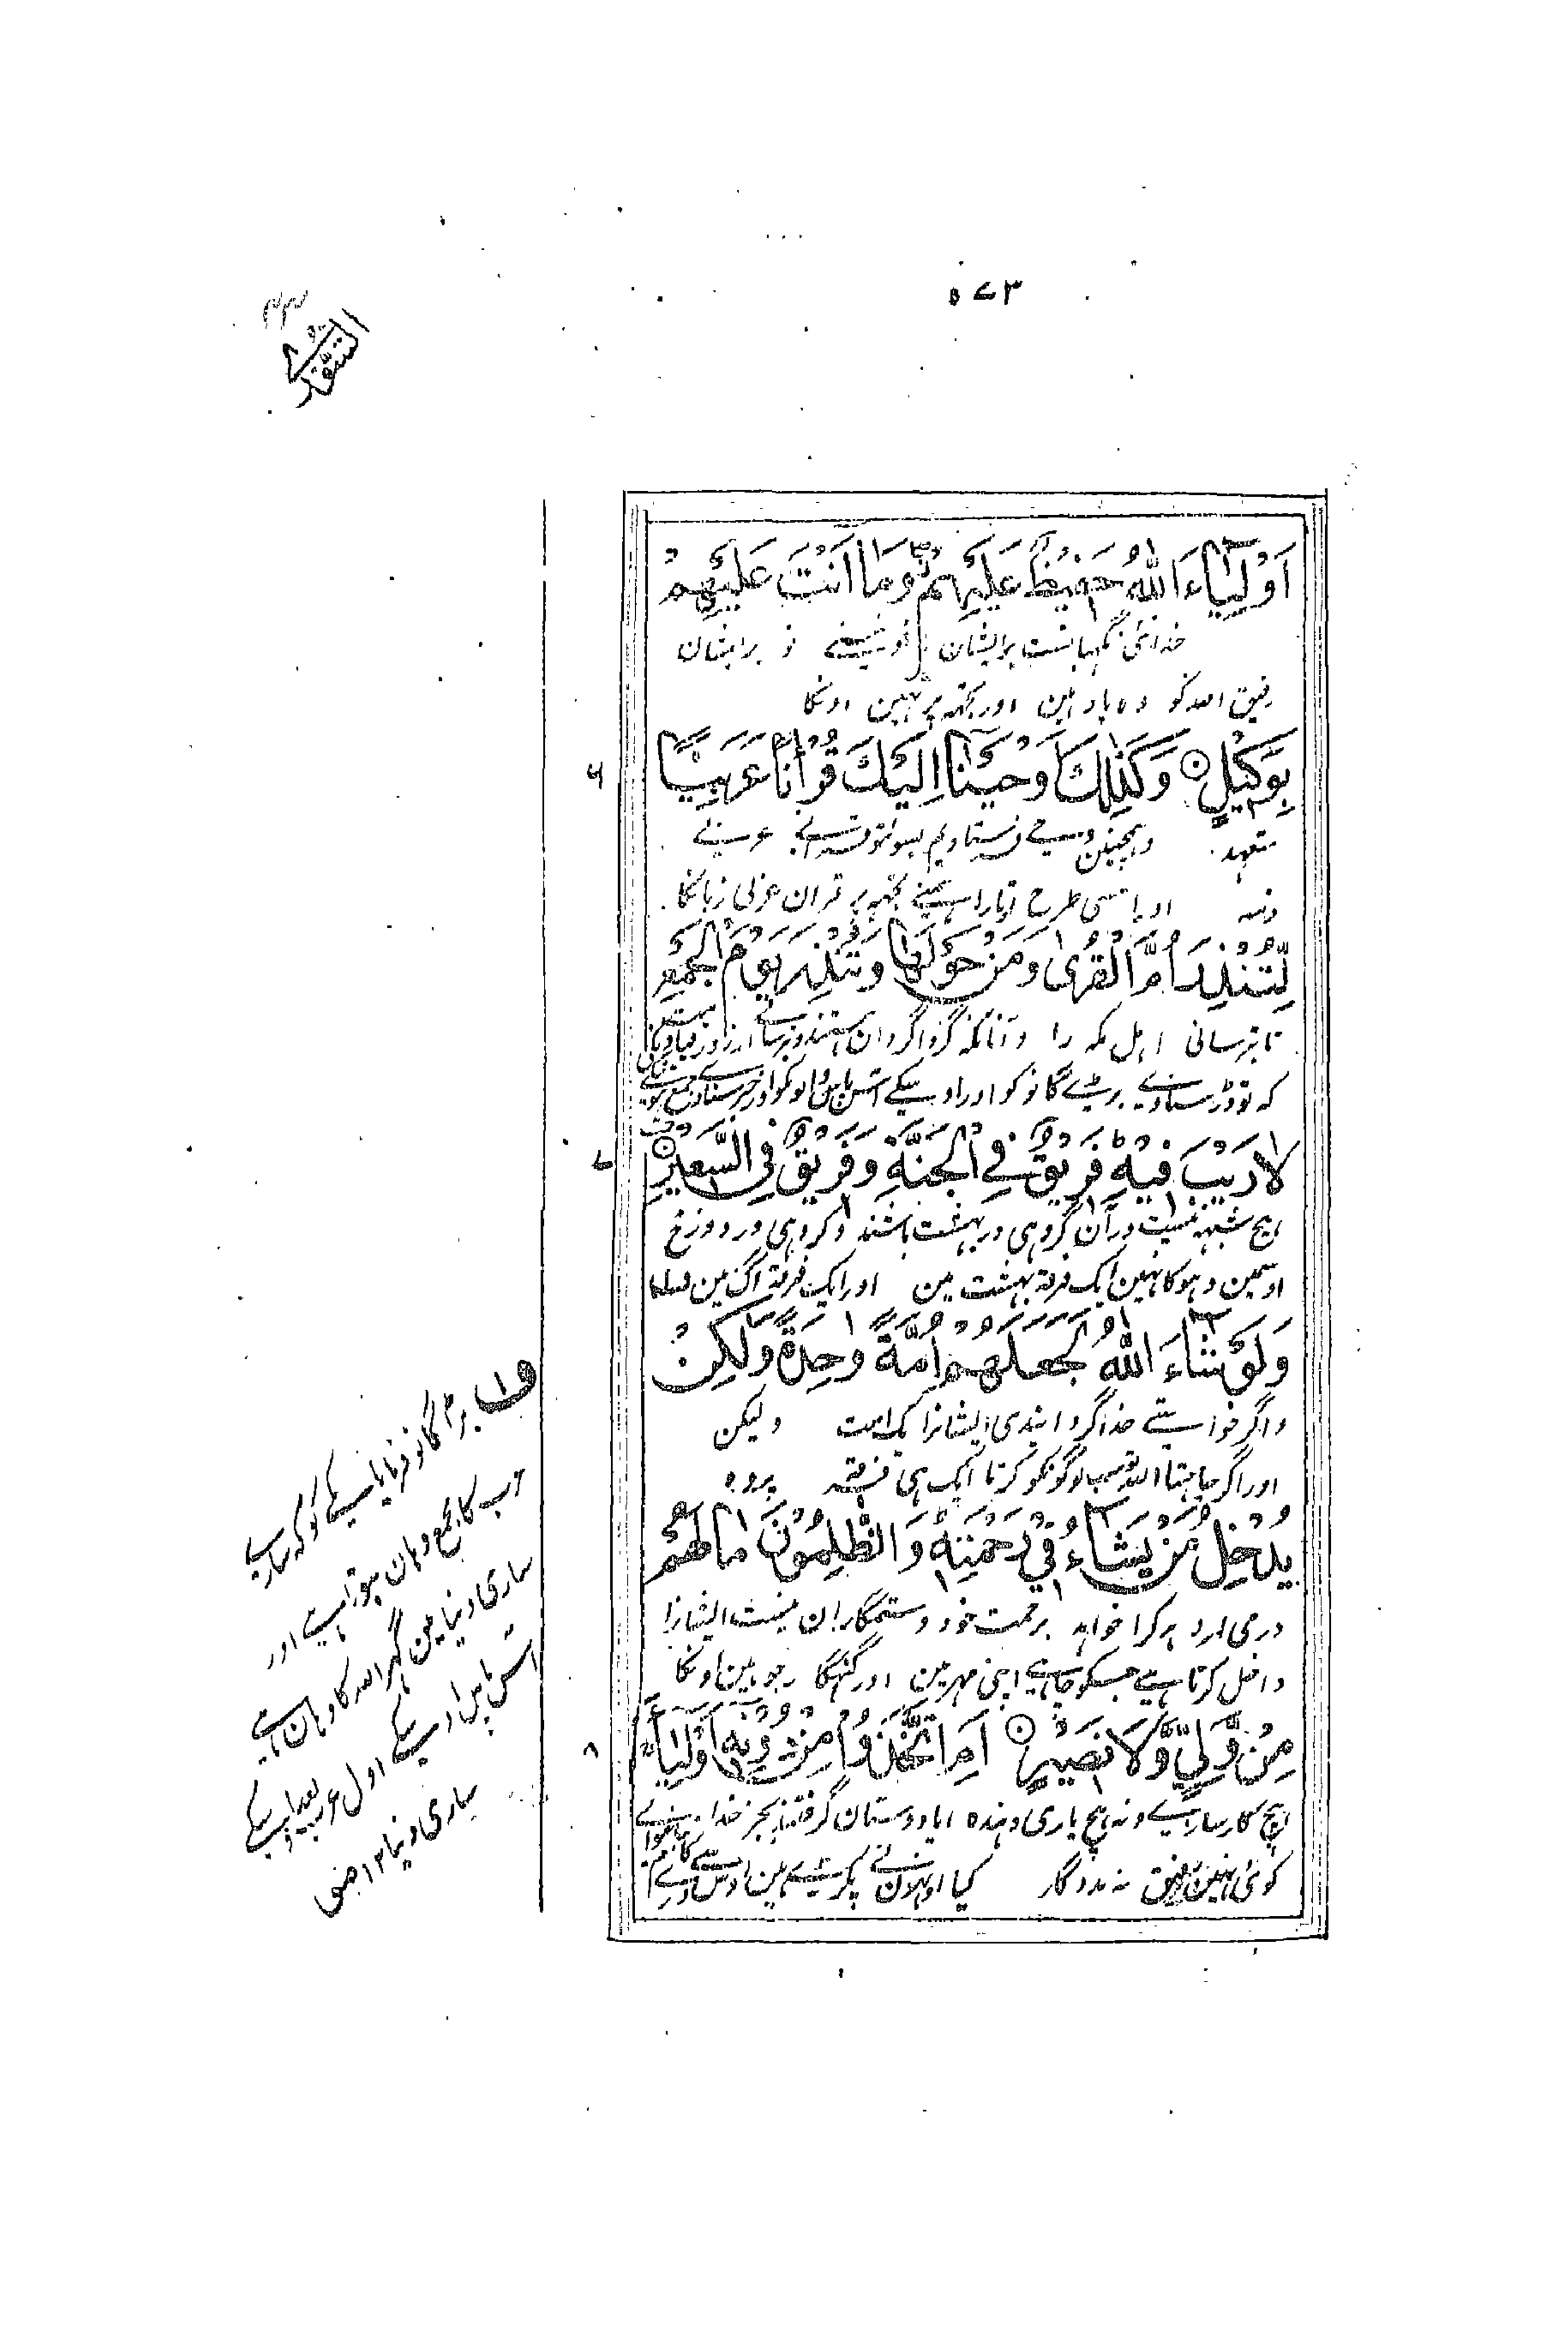 ٥٧٣
الشورى ٤٢
اَوْلِيَاءَ اللّٰهُ حَفِيْظٌ عَلَيْهِمْ وَمَا اَنْتَ عَلَيْهِمْ
خدائی نگہبانست برایشان و تو نیستی برایشان
رفیق اللہ کو وہ یاد ہین اور تجھہ پر نہین اونکا
بِوَكِيْلٍ ۝ وَكَذٰلِكَ اَوْحَيْنَا اِلَيْكَ قُرْاٰنًا عَرَبِيًّا
٦
متعہد وہمچنین وحی فرستادیم بسوئتو قرآنے عربی
ذمہ اور اسی طرح اوتارا ہمنے تجھہ پر قران عربی زبانکا
لِّتُنْذِرَ اُمَّ الْقُرٰى وَمَنْ حَوْلَهَا وَتُنْذِرَ يَوْمَ الْجَمْعِ
تا بترسانی اہل مکہ را و آنانکہ گرداگرد آن ہستند و بترسانی از روز قیامت
کہ تو ڈر سناوے بڑے گانو کو اور اوسکے آس پاس والونکو اور خبر سناوے جمع ہونے
لَا رَيْبَ فِيْهِ فَرِيْقٌ فِي الْجَنَّةِ وَفَرِيْقٌ فِي السَّعِيْرِ ۝
٧
ہیچ شبہہ نیست در آن گروہی در بہشت باشند و گروہی در دوزخ
اوسمین دہوکا نہین ایک فرقہ بہشت مین اور ایک فرقہ آگ مین ف۱
وَلَوْ شَاءَ اللّٰهُ لَجَعَلَهُمْ اُمَّةً وَّاحِدَةً وَّلٰكِنْ
واگر خواستے خدا گردانیدی ایشانرا یک امت ولیکن
اور اگر چاہتا اللہ تو سب لوگونکو کرتا ایک ہی فرقہ پر وہ
يُّدْخِلُ مَنْ يَّشَاءُ فِيْ رَحْمَتِهٖ وَالظّٰلِمُوْنَ مَا لَهُمْ
درمی ارد ہرکرا خواہد برحمت خود و ستمگاران نیست ایشانرا
داخل کرتا ہے جسکو چاہے اپنی مہر مین اور گنہگار جو ہین اونکا
مِّنْ وَّلِيٍّ وَّلَا نَصِيْرٍ ۝ اَمِ اتَّخَذُوْا مِنْ دُوْنِهٖ اَوْلِيَاءَ
٨
ہیچ کارسازے و نہ ہیچ یاری دہندہ ایا دوستان گرفتند بجز خدا
کوئی نہین رفیق نہ مددگار کیا اونہون نے پکڑے ہین اوس سے ورے کام بنانیوالے
ف۱ بڑا گانو فرمایا مکے کو کہ سارے
عرب کا مجمع وہان ہوتا ہے اور
ساری دنیا مین گہر اللہ کا وہان ہے
آس پاس اوسکے اول عرب بعد اسکے
ساری دنیا ۱۲ منہ